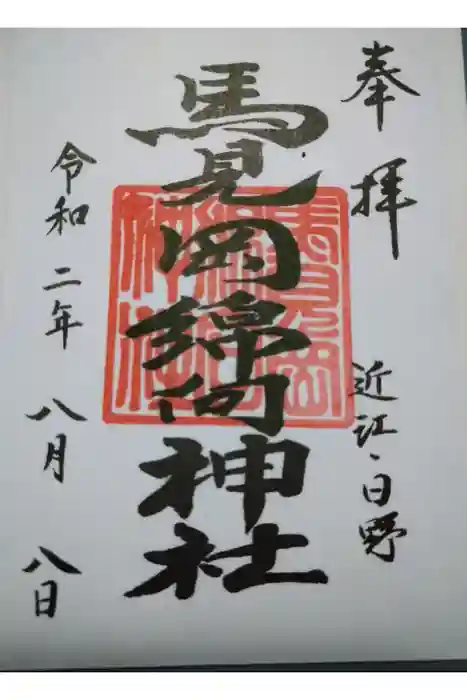 奉拝
近江、日野
馬見岡綿向神社
令和二年八月八日